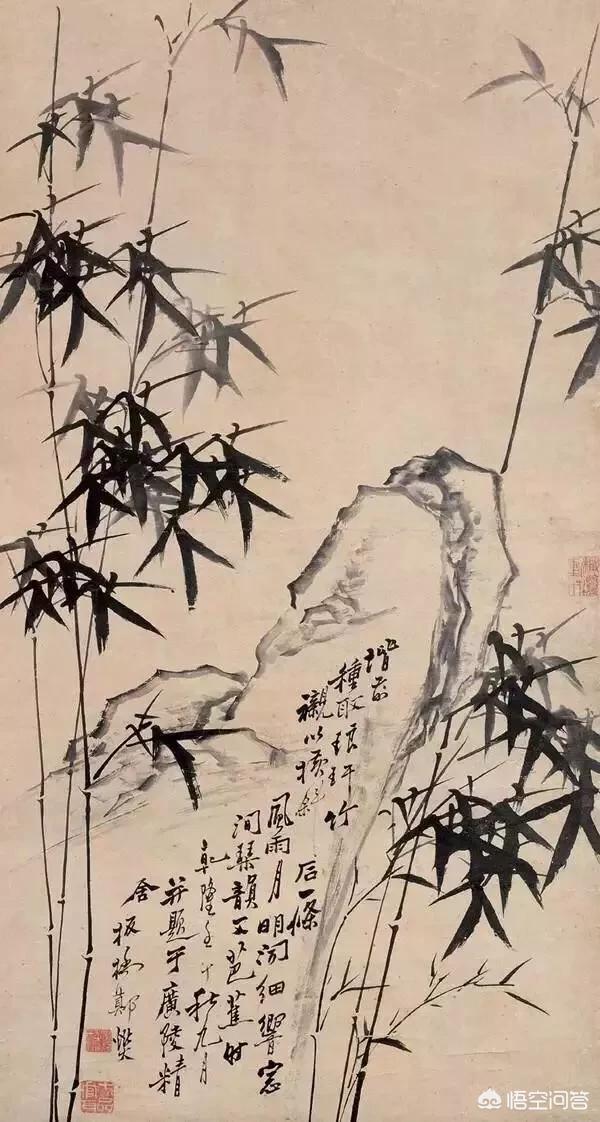 階前
種取琅玕竹
襯以橫斜石一條
風雨月明聞細響窓
間琴韻芭蕉時
乾隆壬午秋九月
并題于廣陵精
舍板橋鄭燮
悟空问答